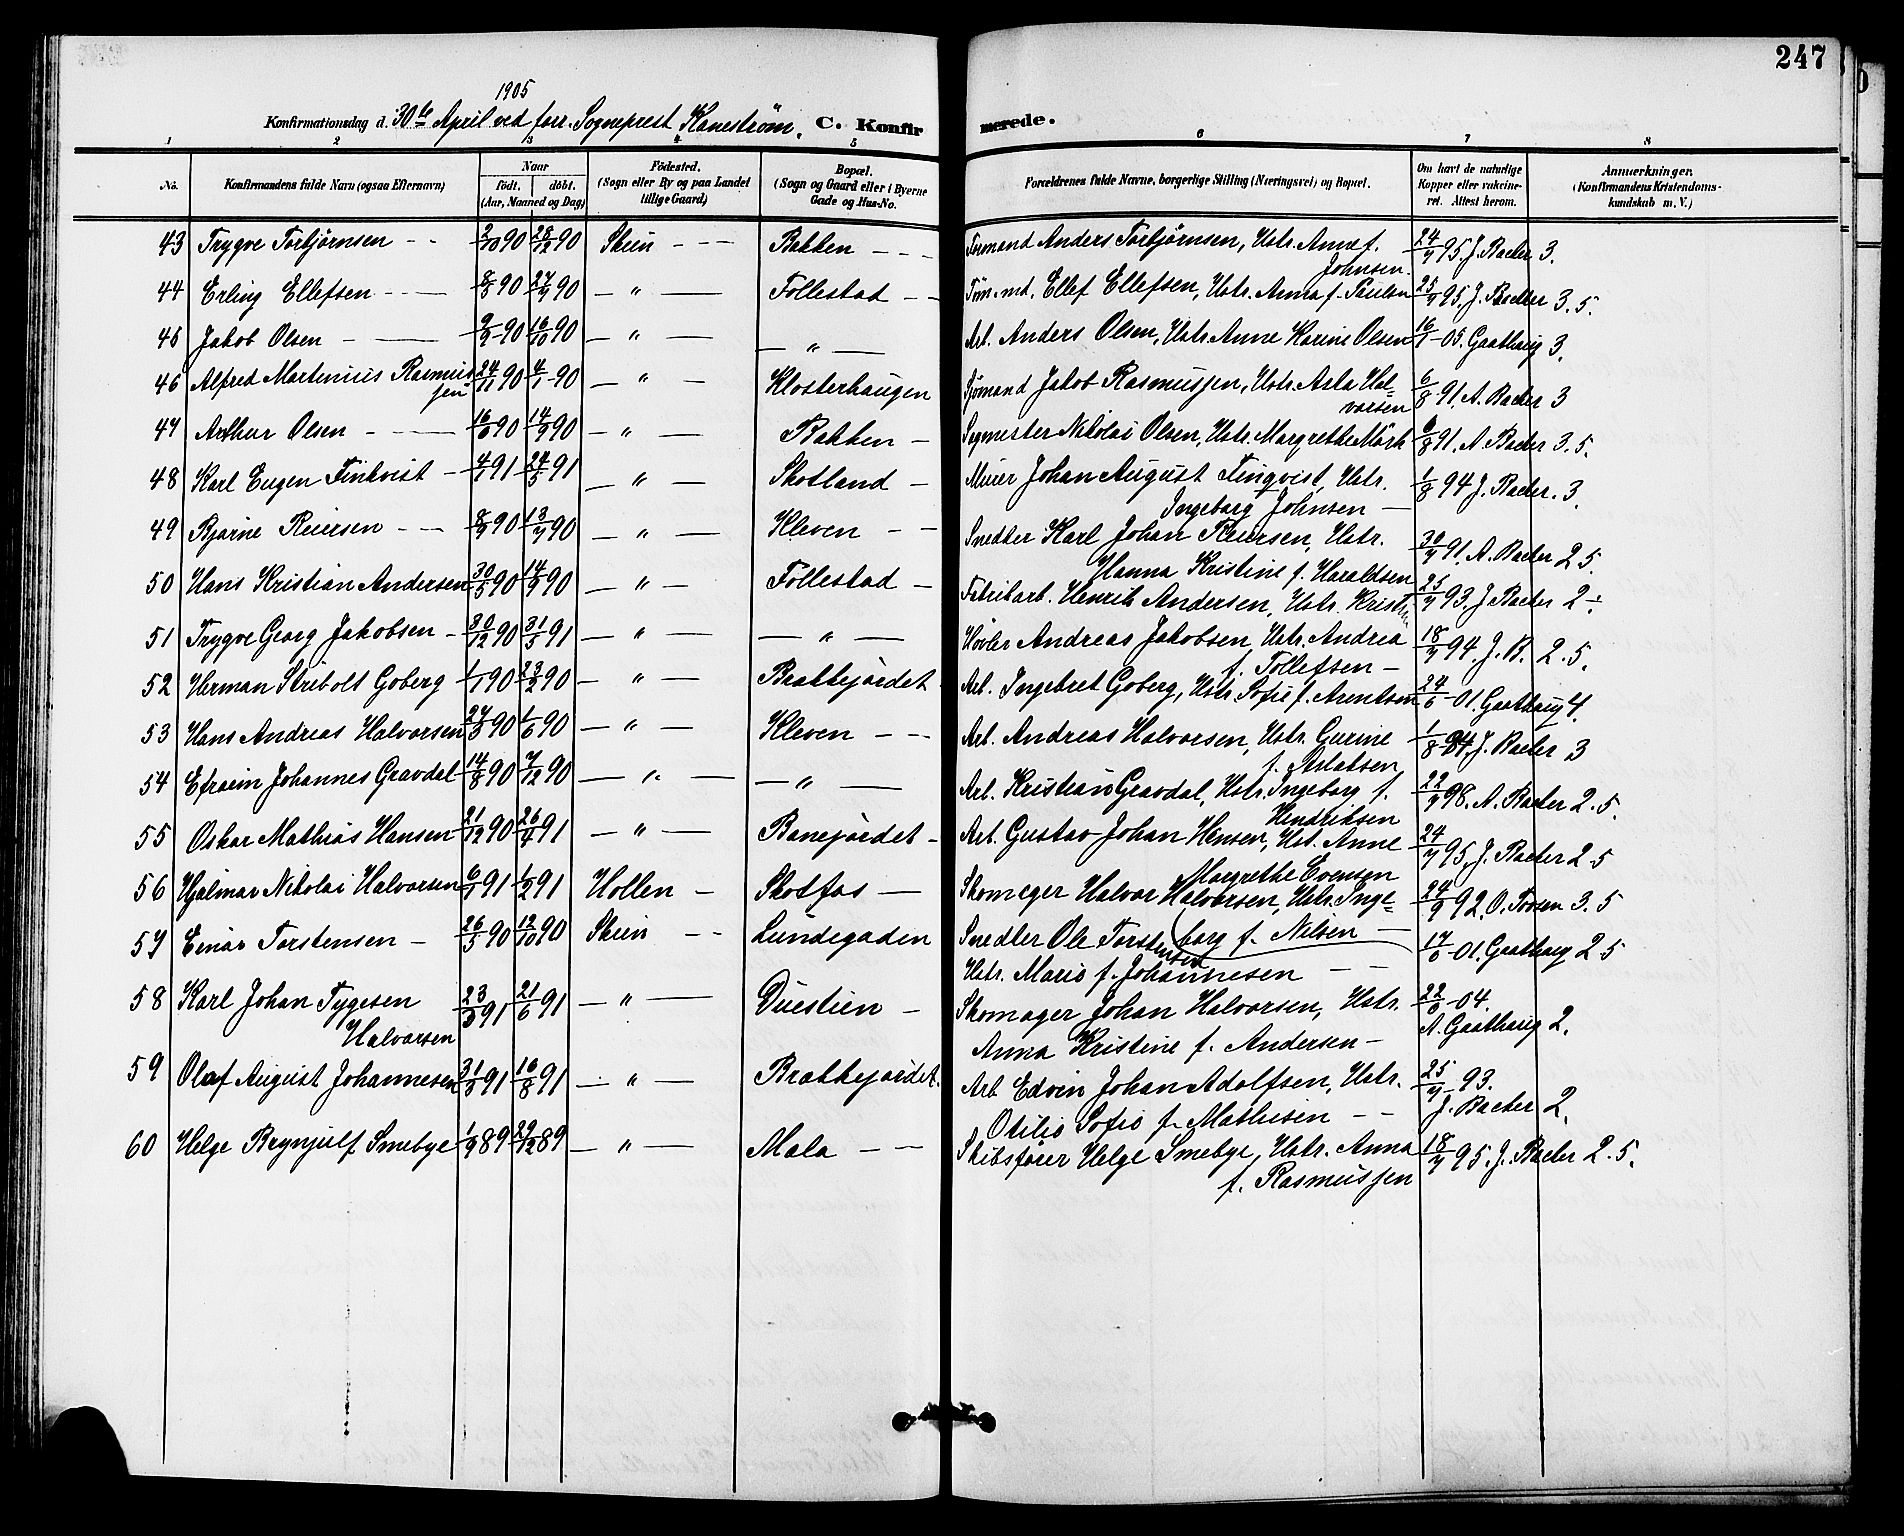 247
1905
Konfirmationsdag d. 30te April ved forr. Sogneprest Kanestrøm. C. Konfirmerede.
1 2 3 4 5 6 7 8
No. Konfirmandens fulde Navn (ogsaa Efternavn) Naar født. døbt. (Aar, Maaned og Dag) Fødested. (Sogn eller By og paa Landet tillige Gaard) Bopæl. (Sogn og Gaard eller i Byerne Gade og Hus-No. Forældrenes fulde Navne, borgerlige Stilling (Næringsvei) og Bopæl. Om havt de naturlige Kopper eller vakcineret. Attest herom. Anmærkninger. (Konfirmandens Kristendomskundskab m. V.)
43 Trygve Torbjørnsen 2/10 90 28/12 90 Skien Bakken Formand Anders Torbjørnsen, Hstr. Anne f. Johnsen. 24/7 95. J. Backer 3.
44 Erling Ellefsen 8/8 90 27/9 90 " Follestad Tøm.md. Ellef Ellefsen, Hstr. Anna f. Paulsen 25/7 95. J. Backer 3.5.
45 Jakob Olsen 9/9 90 16/10 90 " " Arb. Anders Olsen, Hstr. Anne Karine Olsen 16/1 05. Gaathaug 3.
46 Alfred Martinius Rasmussen 24/11 90 4/1 90 " Klosterhaugen Sjømand Jakob Rasmussen, Hstr. Asla Halvorsen 6/8 91. A. Backer 3
47 Arthur Olsen 16/6 90 14/9 90 " Bakken Sagmester Nikolai Olsen, Hstr. Margrethe Mörk 6/8 91. A. Backer 3.5.
48 Karl Eugen Finkvist 4/1 91 24/5 91 " Skotland Murer Johan August Finqvist, Hstr. Ingeborg Johnsen 1/8 94 J. Backer. 3.
49 Bjarne Reiersen 8/4 90 13/7 90 " Kleven Snedker Karl Johan Reiersen, Hstr. Hanna Kristine f. Haraldsen 30/7 91. A. Backer 2 5.
50 Hans Kristian Andersen 30/5 90 14/9 90 " Follestad Fabrikarb. Henrik Andersen, Hstr. 25/7 93. J. Backer 2 ÷
51 Trygve Georg Jakobsen 30/12 90 31/5 91 " " Høvler Andreas Jakobsen, Hstr. Andrea f. Tollefsen 18/7 94. J. B. 2.5.
52 Herman Stribolt Goberg 1/1 90 23/2 90 " Brattejordet Arb. Ingebret Goberg, Hstr. Sofie f. Arentsen 24/6 01. Gaathaug 4.
53 Hans Andreas Halvorsen 27/3 90 1/6 90 " Kleven Arb. Andreas Halvorsen, Hstr. Gurine f. Aslaksen 1/8 94. J. Backer 3
54 Efraim Johannes Gravdal 14/8 90 7/12 90 " " Arb. Kristian Gravdal, Hstr. Ingeborg f. Hendriksen 22/7 98. A. Backer 2.5.
55 Oskar Mathias Hansen 21/12 90 26/4 91 " Banejordet Arb. Gustav Johan Hansen, Hst. Anne Margrethe Evensen 24/7 95. J. Backer 2 5
56 Hjalmar Nikolai Halvorsen 6/1 91 1/2 91 Hollen Skotfos Skomager Halvor Halvorsen, Hstr. Ingeborg f. Nilsen 24/9 92. O. 3.5
57 Einar Torstensen 26/5 90 12/10 90 Skien Lundegaden Snedker Ole Torstensen Hstr. Marie f. Johannesen 17/6 01. Gaathaug 2 5
58 Karl Johan Tygesen Halvorsen 23/3 91 21/6 91 " Duestien Skomager Johan Halvorsen, Hstr. Anna Kristine f. Andersen 22/6 04. A. Gaathaug 2.
59 Olaf August Johannesen 31/3 91 16/8 91 " Brattejordet. Arb Edvin Johan Adolfsen, Hstr. Otilie Sofie f. Mathisen 25/7 93. J. Backer 2.
60 Helge Brynjulf Smebye 1/9 89 29/12 89 " Mæla Skibsfører Helge Smebye, Hstr. Anna f. Rasmussen 18/7 95. J. Backer 2.5.